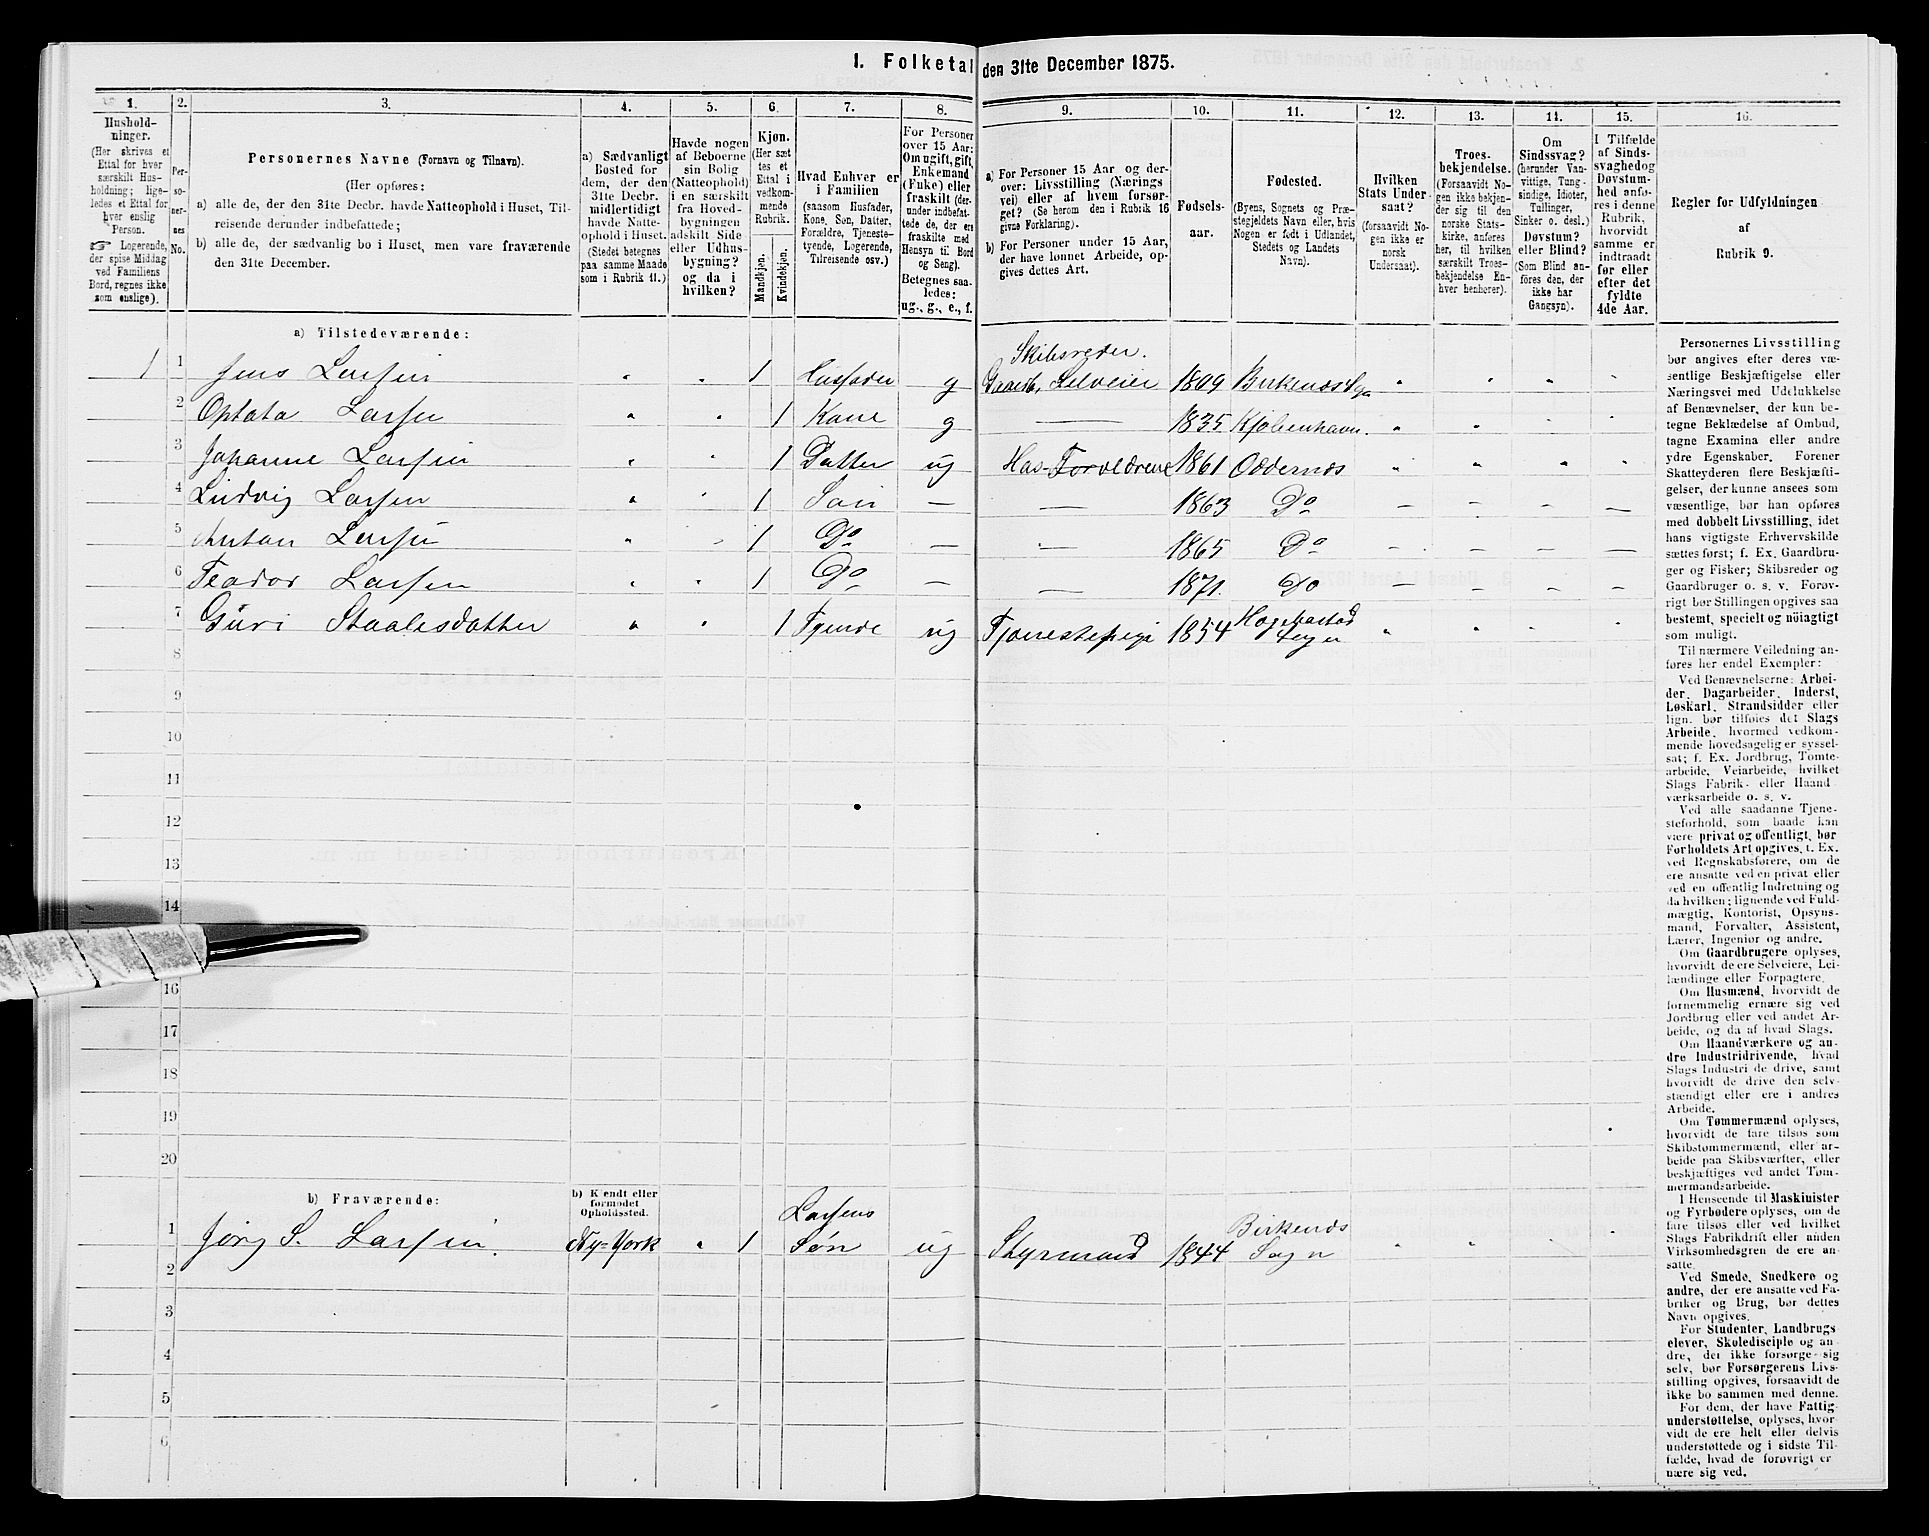 I. Folketal den 31te December 1875.
1. 2. 3. 4. 5. 6. 7. 8. 9. 10. 11. 12. 13. 14. 15. 16.
Hushold-
ninger.
(Her skrives et
Ettal for hver
særskilt Hus-
holdning; lige-
ledes et Ettal for
hver enslig
Person.
☞ Logerende,
der spise Middag
ved Familiens
Bord, regnes ikke
som enslige).
Per-
so-
ner-
nes
No.
Personernes Navne (Fornavn og Tilnavn).
(Her opføres:
a) alle de, der den 31te Decbr. havde Natteophold i Huset, Til-
reisende derunder indbefattede;
b) alle de, der sædvanlig bo i Huset, men vare fraværende
den 31te December.
a) Sædvanligt
Bosted for
dem, der den
31te Decbr.
midlertidigt
havde Natte-
ophold i Huset.
(Stedet betegnes
paa samme Maade
som i Rubrik 11.)
Havde nogen
af Beboerne
sin Bolig
(Natteophold)
i en særskilt
fra Hoved-
bygningen
adskilt Side
eller Udhus-
bygning?
og da i
hvilken?
Kjøn.
(Her sæt-
tes et
Ettal i
vedkom-
mende
Rubrik.
Mandkjøn.
Kvindekjøn.
Hvad Enhver er
i Familien
(saasom Husfader,
Kone, Søn, Datter,
Forældre, Tjeneste-
tyende, Logerende,
Tilreisende osv.)
For Personer
over 15 Aar:
Om ugift, gift,
Enkemand
(Enke) eller
fraskilt (der-
under indbefat-
tede de, der ere
fraskilte med
Hensyn til Bord
og Seng).
Betegnes saa-
ledes:
ug., g., e., f.
a) For Personer 15 Aar og der-
over: Livsstilling (Nærings
vei) eller af hvem forsør-
get? (Se herom den i Rubrik 16
givne Forklaring).
b) For Personer under 15 Aar,
der have lønnet Arbeide, op-
gives dettes Art.
Fødsels-
aar.
Fødested.
(Byens, Sognets og Præ-
stegjeldets Navn eller, hvis
Nogen er født i Udlandet,
Stedets og Landets
Navn).
Hvilken
Stats Under-
saat?
(forsaavidt No-
gen ikke er
norsk
Undersaat).
Troes-
bekjendelse.
(Forsaavidt No-
gen ikke bekjen-
der sig til den
norske Stats-
kirke, anføres
her, til hvilken
særskilt Troes-
bekjendelse En-
hver henhører).
Om
Sindssvag?
(herunder Van-
vittige, Tung-
sindige, Idioter,
Tullinger,
Sinker o. desl.)
Døvstum?
eller Blind?
(Som Blind an-
føres den, der
ikke har
Gangsyn).
I Tilfælde
af Sinds-
svaghed og
Døvstum-
hed anfø-
res i denne
Rubrik,
hvorvidt
samme er
indtraadt
før eller
efter det
fyldte
4de Aar.
Regler for Udfyldningen
af
Rubrik 9.
a) Tilstedeværende:
Skibsreder.
1 1 Jens Larsen " " 1 Husfader g Gaardb. Selveier 1809 Birkenæs Sgn " " " "
2 Optata Larsen " " 1 Kone g — 1835 Kjøbenhavn. " " " "
3 Johanne Larsen " " 1 Datter ug Hos Forældrene 1861 Oddernæs " " " "
4 Ludvig Larsen " " 1 Søn — — 1863 Do — — — —
5 Anton Larsen " " 1 Do — — 1865 Do — — — —
6 Teodor Larsen " " 1 Do — — 1871. Do — — — —
7 Guri Staalesdatter " " 1 Tyende ug Tjenestepige 1854 Hægebostad
Sogn " " " "
8
9
10
11
12
13
14
16
17
18
19
20
b) Fraværende:
b) Kjendt eller
formodet
Opholdssted.
1 Jørg S. Larsen. Ny-York " 1 Larsens
Søn ug Styrmand 1844 Birkenæs
Sogn " " " "
2
3
4
5
6
Personernes Livsstilling
bør angives efter deres væ-
sentlige Beskjæftigelse eller
Næringsvei med Udelukkelse
af Benævnelser, der kun be-
tegne Beklædelse af Ombud,
tagne Examina eller andre
ydre Egenskaber. Forener
Skatteyderen flere Beskjæfti-
gelser, der kunne ansees som
væsentlige, bør han opføres
med dobbelt Livsstilling, idet
hans vigtigste Erhvervskilde
sættes først; f. Ex. Gaardbru-
ger og Fisker; Skibsreder og
Gaardbruger o. s. v. Forøv-
rigt bør Stillingen opgives saa
bestemt, specielt og nøiagtigt
som muligt.
Til nærmere Veiledning an-
føres her endel Exempler:
Ved Benævnelserne: Arbei-
der, Dagarbeider, Inderst,
Løskarl, Strandsidder eller
lign. bør tilføies det Slags
Arbeide, hvormed vedkom-
mende hovedsagelig er syssel-
sat; f. Ex. Jordbrug, Tomte-
arbeide, Veiarbeide, hvilket
Slags Fabrik- eller Haand-
værksarbeide o. s. v.
Ved alle saadanne Tjene-
steforhold, som baade kan
være privat og offentligt, bør
Forholdets Art opgives, t. Ex.
ved Regnskabsførere, om de
ere ansatte ved en privat eller
ved en offentlig Indretning og
da hvilken; lignende ved Fuld-
mægtig, Kontorist, Opsyns-
mand, Forvalter, Assistent,
Lærer, Ingeniør og andre.
Om Gaardbrugere oplyses,
hvorvidt de ere Selveiere, Lei-
lændinge eller Forpagtere.
Om Husmænd, hvorvidt de
fornemmelig ernære sig ved
Jordbrug eller ved andet Ar-
beide, og da af hvad Slags.
Om Haandværkere og an-
dre Industridrivende, hvad
Slags Industri de drive, samt
hvorvidt de drive den selv-
stændigt eller ere i andres
Arbeide.
Om Tømmermænd oplyses,
hvorvidt de fare tilsøs som
Skibstømmermænd, eller ar-
beide paa Skibsværfter, eller
beskjæftiges ved andet Tøm-
mermandsarbeide.
I Henseende til Maskinister
og Fyrbødere oplyses, om de
fare tilsøs eller ved hvilket
Slags Fabrikdrift eller anden
Virksomhedsgren de ere an-
satte.
Ved Smede, Snedkere og
andre, der ere ansatte ved Fa-
briker og Brug, bør dettes
Navn opgives.
For Studenter, Landbrugs-
elever, Skoledisciple og an-
dre, der ikke forsørge sig
selv, bør Forsørgerens Livs-
stilling opgives, forsaavidt de
ikke bo sammen med denne.
For dem, der have Fattig-
understøttelse, oplyses, hvor-
vidt de ere helt eller delvis
understøttede og i sidste Til-
fælde, hvad de forøvrigt er-
nære sig ved.